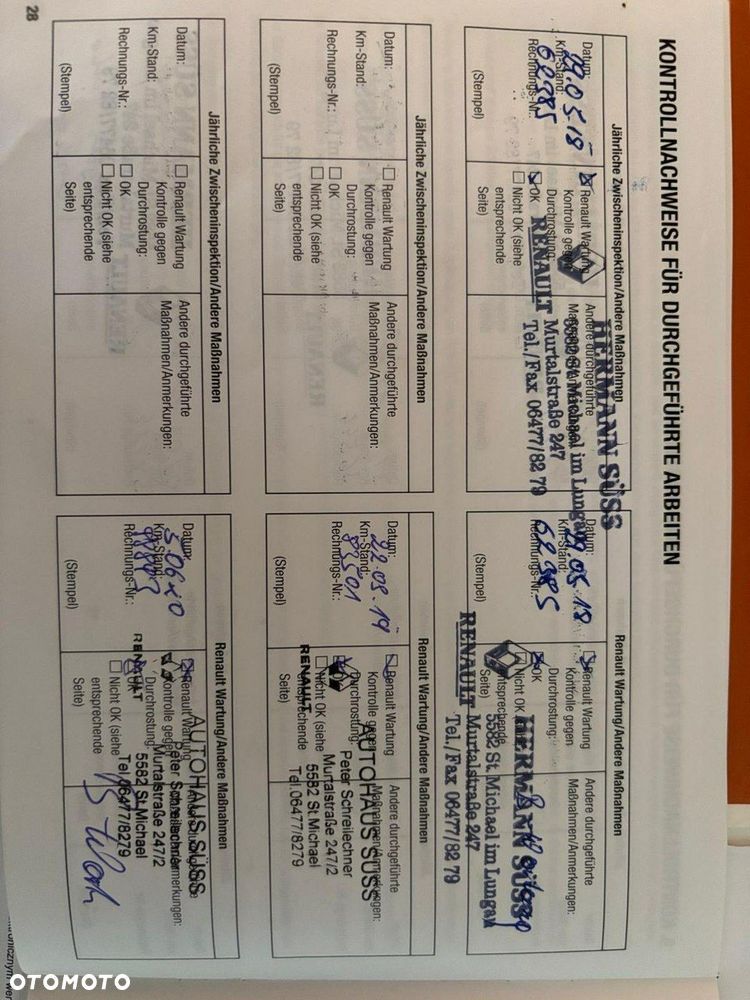 KONTROLLNACHWEISE FÜR DURCHGEFÜHRTE ARBEITEN
Jährliche Zwischeninspektion/Andere Maßnahmen
Datum:
29.05.18
Km-Stand:
62385
Rechnungs-Nr.:
(Stempel)
Renault Wartung
Kontrolle gegen
OK
Nicht OK (siehe
entsprechende
Seite)
Andere durchgeführte
HERMANN SÜSS
5582 St. Michael im Lungau
Murtalstraße 247
Tel./Fax 06477/82 79
RENAULT
Renault Wartung/Andere Maßnahmen
Datum:
29.05.18
Km-Stand:
62385
Rechnungs-Nr.:
(Stempel)
Renault Wartung
Kontrolle gegen
Durchrostung:
OK
Nicht OK
entsprechende
Seite)
Andere durchgeführte
Maßnahmen/Anmerkungen:
HERMANN SÜSS
5582 St. Michael im Lungau
Murtalstraße 247
Tel./Fax 06477/82 79
RENAULT
Jährliche Zwischeninspektion/Andere Maßnahmen
Datum:
Km-Stand:
Rechnungs-Nr.:
(Stempel)
Renault Wartung
Kontrolle gegen
Durchrostung:
OK
Nicht OK (siehe
entsprechende
Seite)
Andere durchgeführte
Maßnahmen/Anmerkungen:
Renault Wartung/Andere Maßnahmen
Datum:
22.03.19
Km-Stand:
83501
Rechnungs-Nr.:
(Stempel)
Renault Wartung
Kontrolle gegen
Durchrostung:
Nicht OK (siehe
entsprechende
Seite)
Andere durchgeführte
Maßnahmen/Anmerkungen:
AUTOHAUS SÜSS
Peter Schreilechner
Murtalstraße 247/2
5582 St.Michael
Tel.06477/8279
RENAULT
Jährliche Zwischeninspektion/Andere Maßnahmen
Datum:
Km-Stand:
Rechnungs-Nr.:
(Stempel)
Renault Wartung
Kontrolle gegen
Durchrostung:
OK
Nicht OK (siehe
entsprechende
Seite)
Andere durchgeführte
Maßnahmen/Anmerkungen:
Renault Wartung/Andere Maßnahmen
Datum:
Km-Stand:
Rechnungs-Nr.:
(Stempel)
Renault Wartung
Kontrolle gegen
Durchrostung:
Nicht OK (siehe
entsprechende
Seite)
AUTOHAUS SÜSS
Peter Schreilechner
Murtalstraße 247/2
5582 St.Michael
Tel.06477/8279
RENAULT
28
OTOMOTO